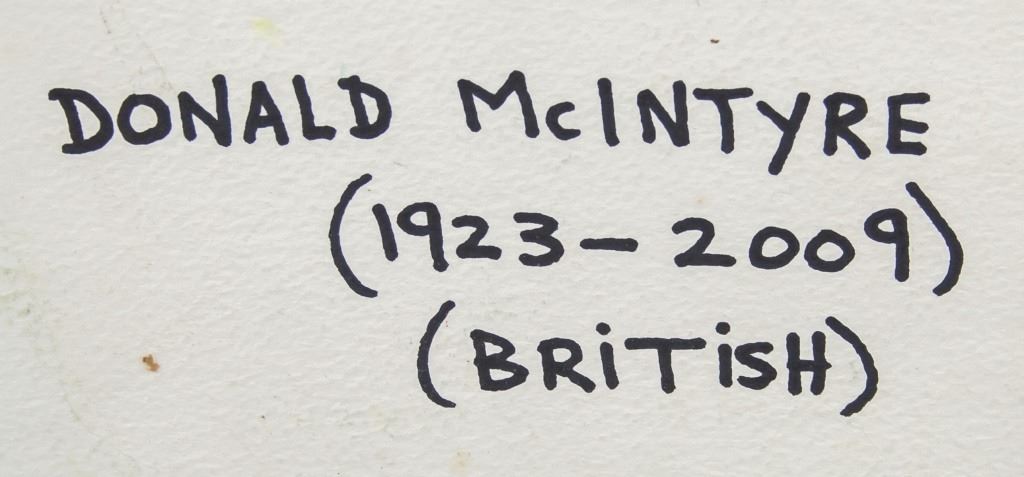 DONALD McINTYRE
(1923-2009)
(BRiTiSH)